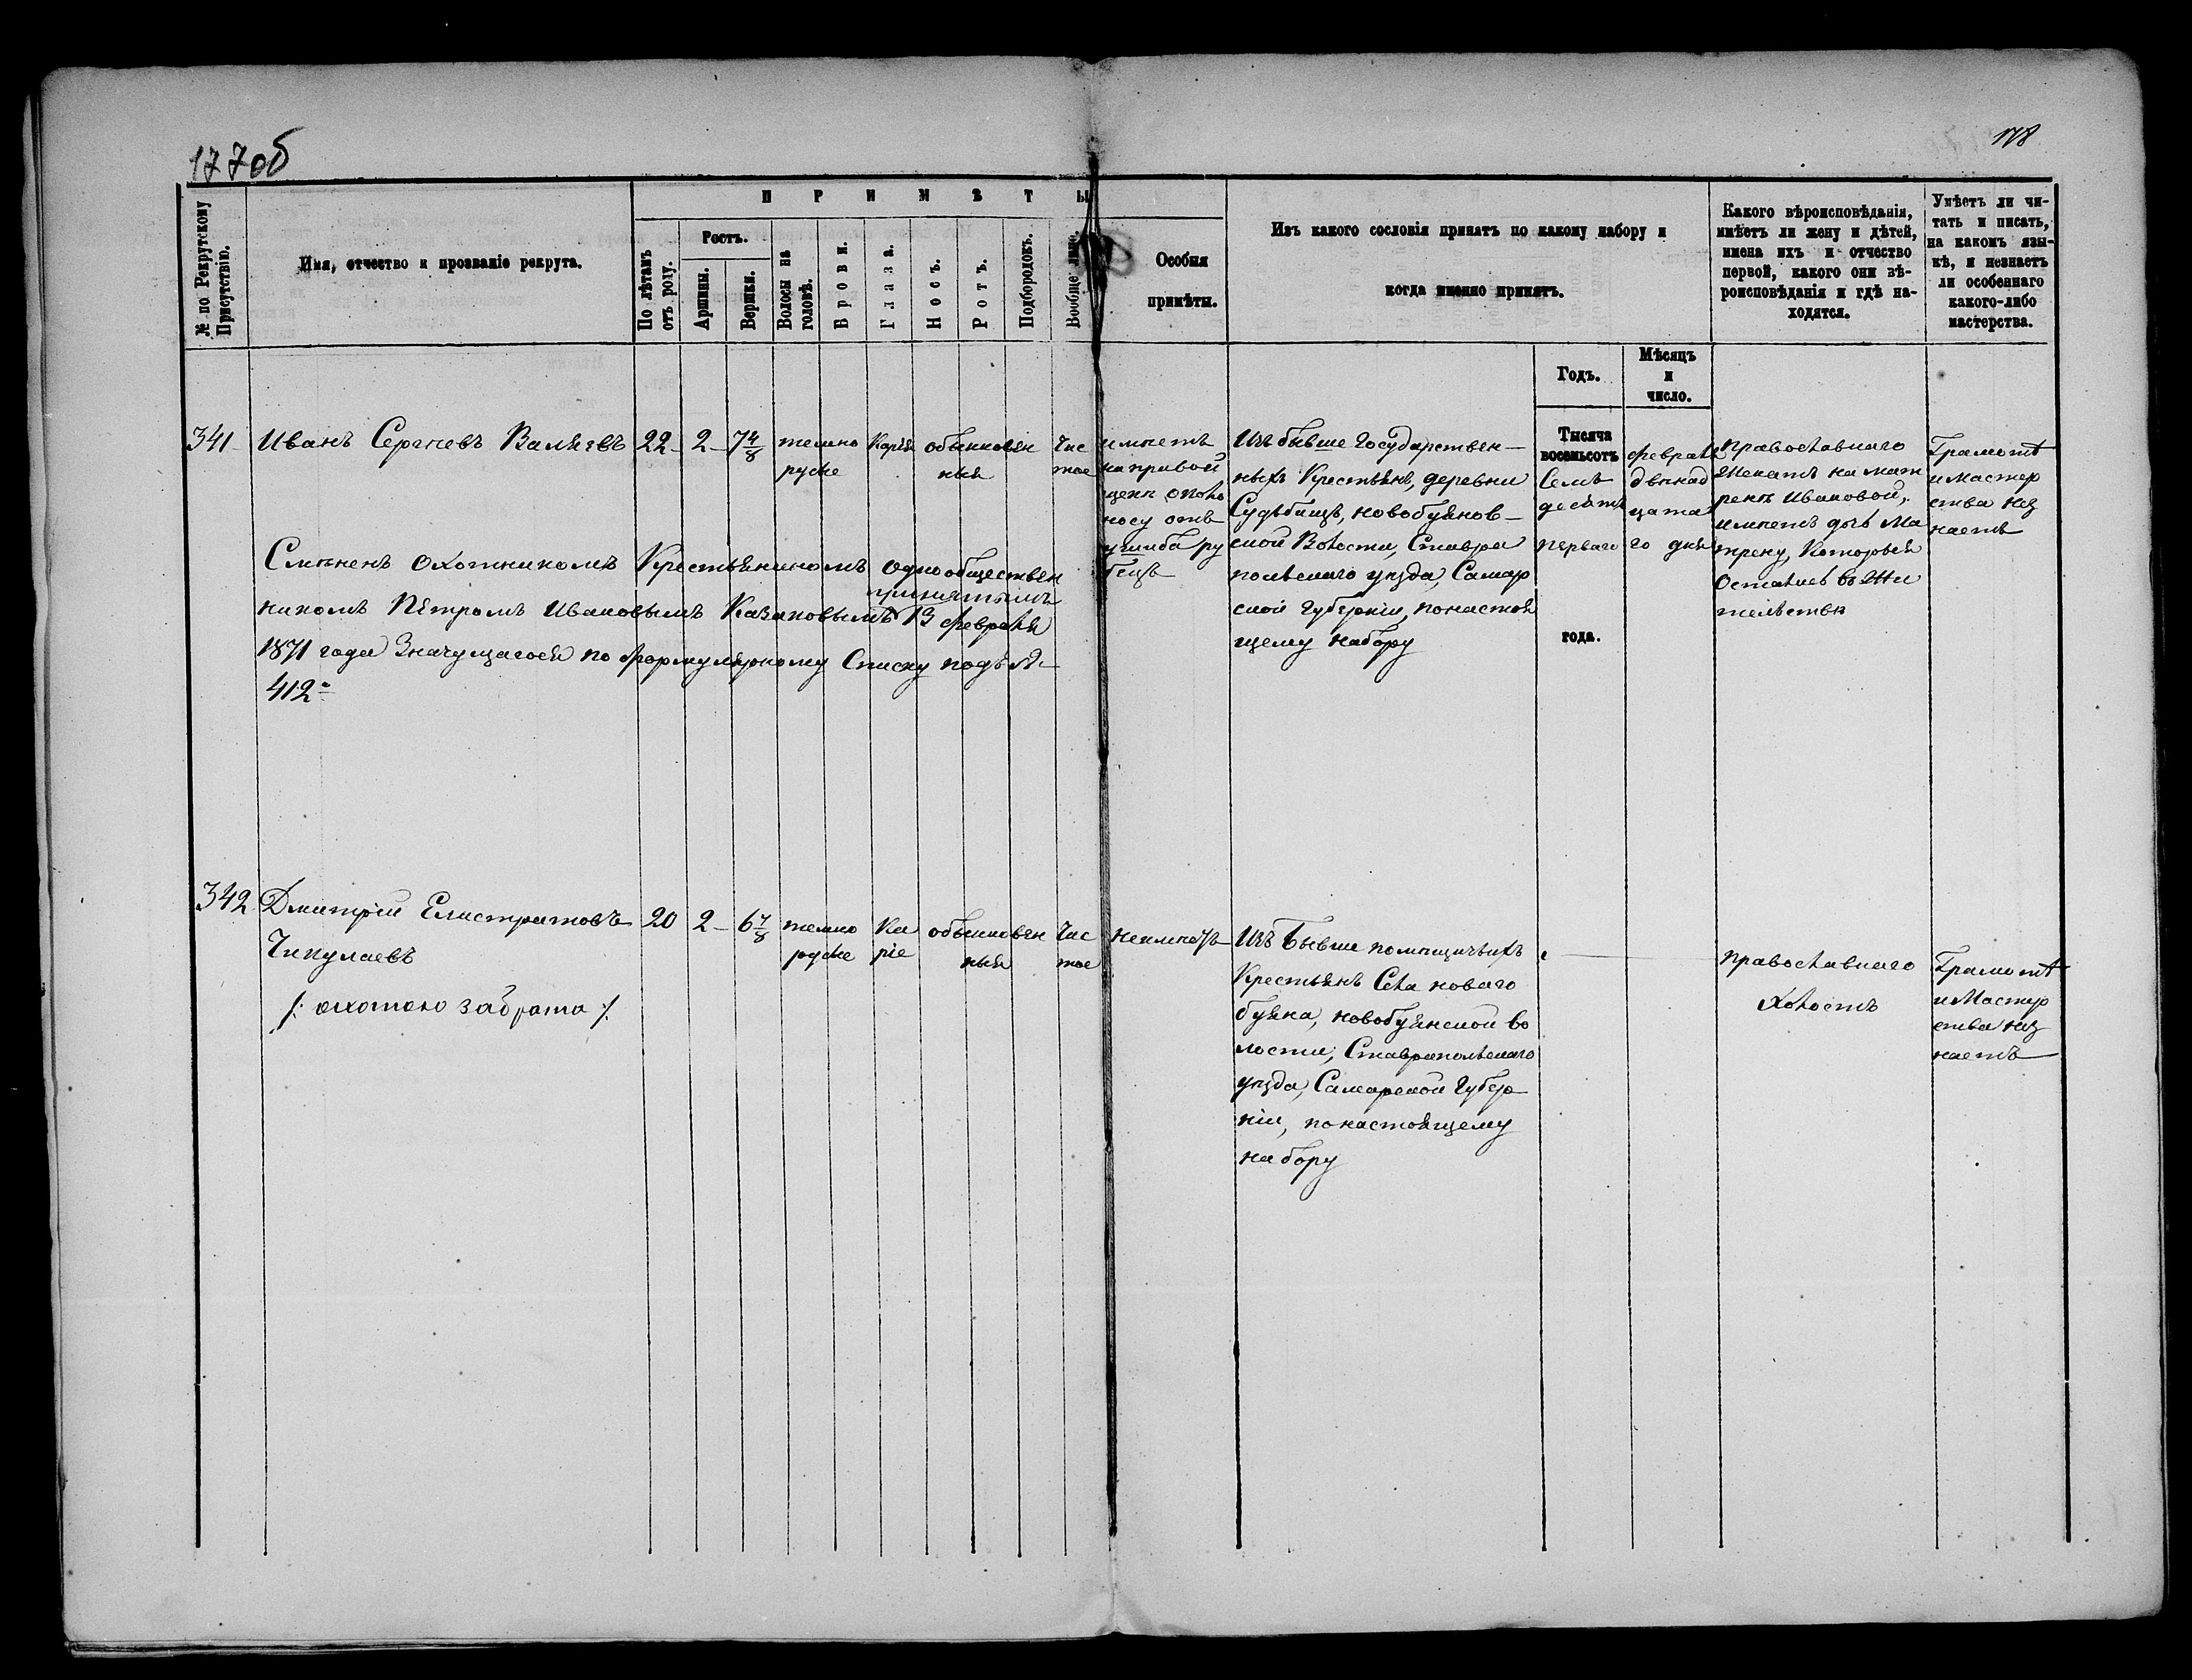 177об
178
№ по Рекрутскому
Присутствію.
Имя, отчество и прозваніе рекрута.
ПРИМѢТЫ
По лѣтамъ
отъ роду.
Ростъ.
Аршины.
Вершки.
Волосы на
головѣ.
Брови.
Глаза.
Носъ.
Ротъ.
Подбородокъ.
Вообще лице.
Особыя
примѣты.
Изъ какого сословія принятъ по какому набору и
когда именно принятъ.
Какого вѣроисповѣданія,
имѣетъ ли жену и дѣтей,
имена ихъ и отчество
первой, какого они вѣ-
роисповѣданія и гдѣ на-
ходятся.
Умѣетъ ли чи-
тать и писать,
на какомъ язы-
кѣ, и незнаетъ
ли особеннаго
какого-либо
мастерства.
Годъ.
Мѣсяцъ
и
число.
341
Иванъ Сергѣевъ Валяевъ
22
2
7 4/8
темно
русые
Карія
обыкновен
ныя
Чис
тое
имѣетъ
на правой
щекѣ около
носу отъ
ушиба ру
бецъ
Изъ бывше Государствен-
ныхъ Крестьянъ, деревни
Судьбищъ, новобуянов-
ской Волости, Ставро
польскаго уѣзда, Самар
ской Губерніи, по настоя
щему набору
Тысяча
восемьсотъ
Семь
десятъ
перваго
года.
февраля
двѣнад
цата
го дня
православнаго
Женатъ на мат
ренѣ Ивановой,
имѣетъ дочь Ма
трену, Которыя
Остались въ Жи
тельствѣ
Грамотѣ
и мастер
ства нез
наетъ
Смѣненъ охотникомъ Крестьяниномъ однообществен
никомъ Пётромъ Ивановымъ Казаковымъ принятымъ 13 февраля
1871 года Значущагося по формулярному Списку подъ №
412
342
Дмитрій Елистратовъ
Чикулаевъ
/: охотою за брата :/
20
2
6 7/8
темно
русые
Ка
ріе
обыкновен
ныя
Чис
тое
неимѣетъ
Изъ Бывше помѣщичьихъ
Крестьянъ Села новаго
буяна, новобуянской во
лости, Ставропольскаго
уѣзда, Самарской Губер
ніи, по настоящему
набору
православнаго
Холостъ
Грамотѣ
и Мастер
ства нез
наетъ